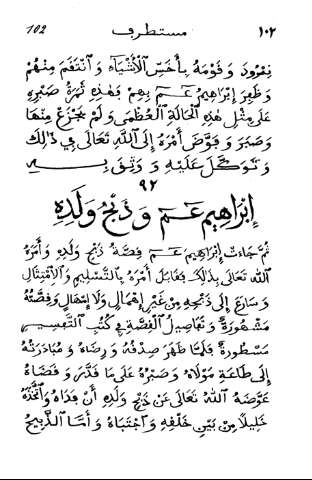 102 مستطرف ١٠٢
نمرود وقومه بأخس الأشياء وانتقم منهم
وظفر إبراهيم عـم بهم فهذه ثمرة صبره
على مثل هذه الحالة العظمى ولم يجزع منها
وصبر وفوض أمره إلى الله تعالى في ذلك
وتوكل عليه ووثق به
٩٢
إبراهيم عـم وذبح ولده
ثم جاءت إبراهيم عـم قصة ذبح ولده وأمره
الله تعالى بذلك فقابل أمره بالتسليم والامتثال
وسارع إلى ذبحه من غير إهمال ولا إمهال وقصته
مشهورة وتفاصيل القصة في كتب التفسير
مسطورة فلما ظهر صدقه ورضاه ومبادرته
إلى طاعة مولاه وصبره على ما قدر وقضاه
عوضه الله تعالى عن ذبح ولده أن فداه واتخذه
خليلا من بين خلقه واجتباه وأما الذبيح